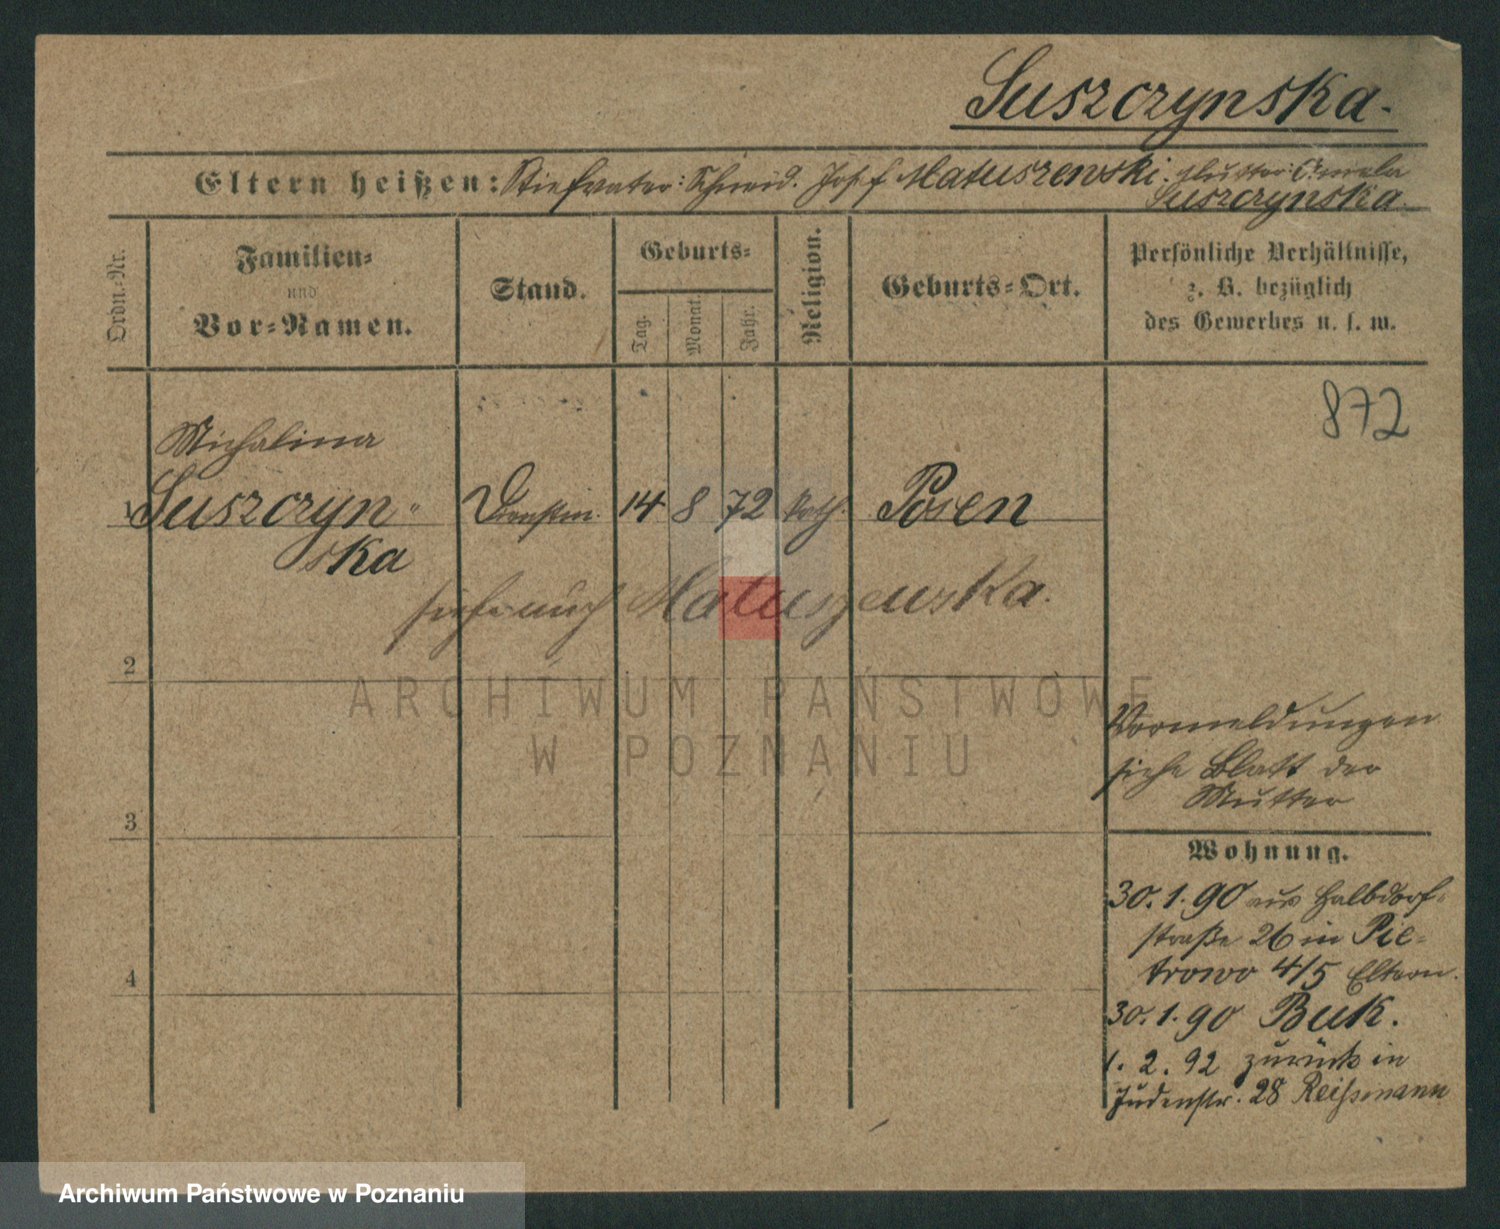 Suszczynska.
Eltern heißen: Stiefvater: Schneid. Josef Matuszewski. Mutter:
Suszczynska.
Ordn.-Nr.
Familien-
und
Vor-Namen.
Stand.
Geburts-
Tag.
Monat.
Jahr.
Religion.
Geburts-Ort.
Persönliche Verhältnisse,
z. B. bezüglich
des Gewerbes u. s. w.
872
Michalina
1 Suszczyn- Dienstm. 14 8 72 kath. Posen
ska
siehe auch Matuszewska.
2
ARCHIWUM PAŃSTWOWE
W POZNANIU
Vormeldungen
siehe Blatt der
Mutter
3
Wohnung.
30.1.90 aus Halbdorf-
straße 26 in Pie-
trowo 4/5 Eltern.
4
30.1.90 Buk.
1.2.92 zurück in
Judenstr. 28 Reissmann
Archiwum Państwowe w Poznaniu